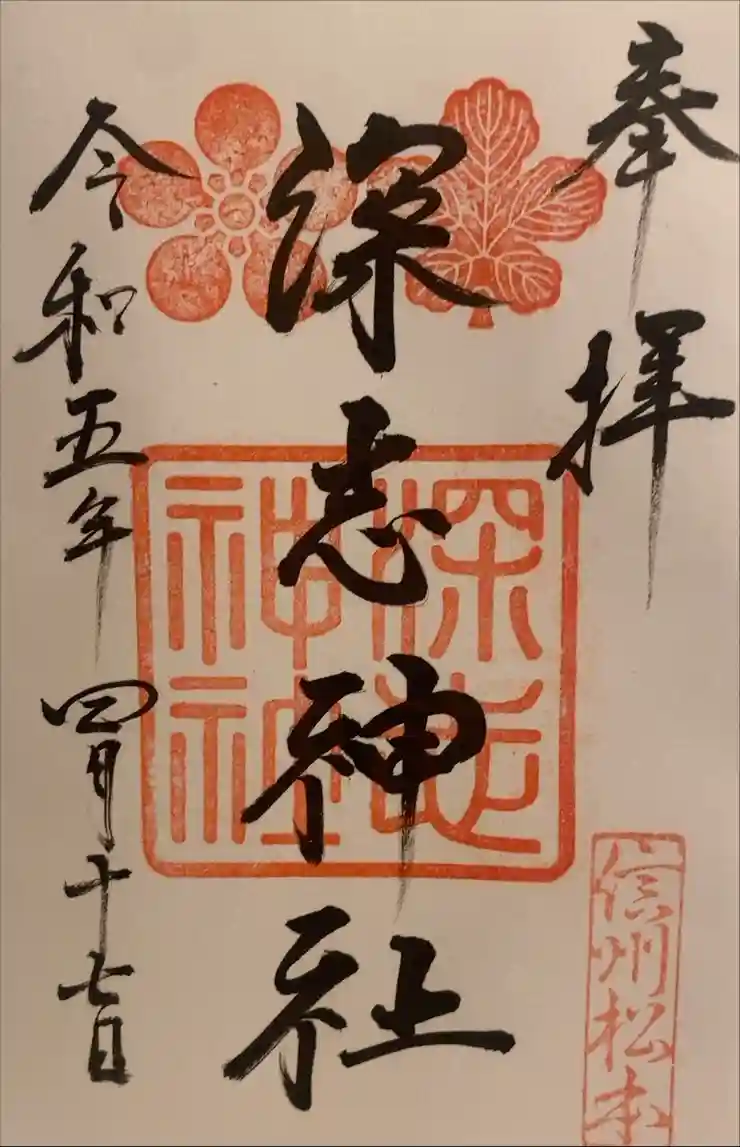 奉拝
深志神社
深志
神社
令和五年四月十七日
信州松本